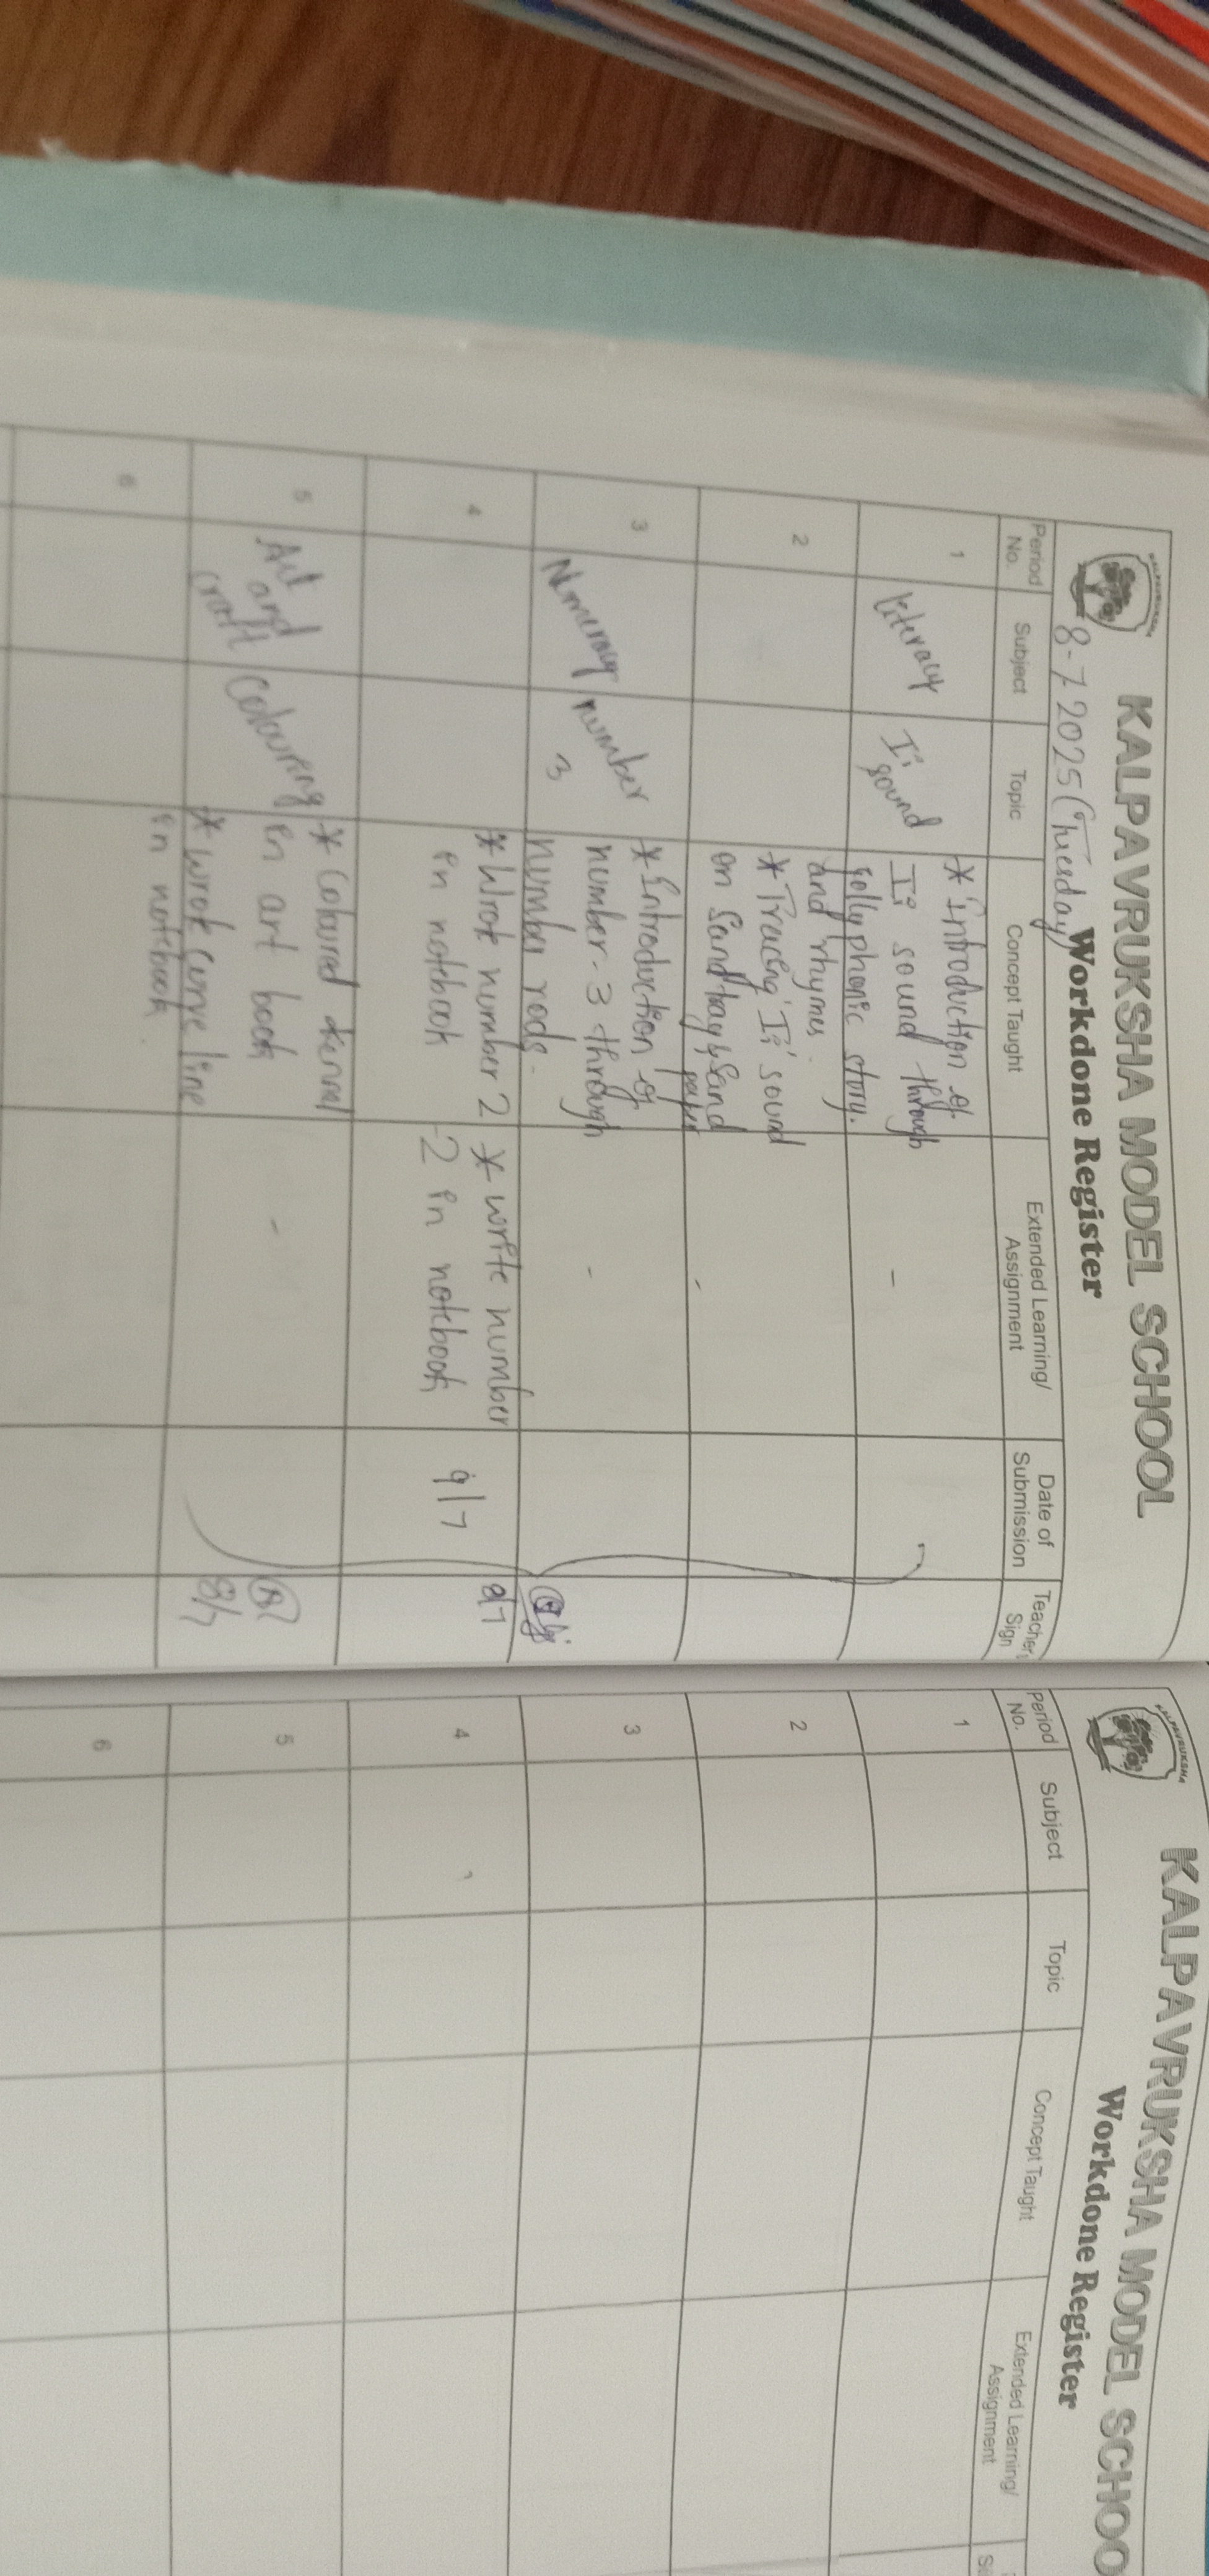 KALPAVRUKSHA
KALPAVRUKSHA MODEL SCHOOL
Workdone Register
8-7 2025 (Tuesday)
Period No.
Subject
Topic
Concept Taught
Extended Learning/
Assignment
Date of
Submission
Teacher
Sign
1
literacy
Ii
sound
* Introduction of
Ii sound through
jolly phonic story.
and rhymes.
-
2
* Tracing 'Ii' sound
on Sand tray & Sand
paper
-
3
Numeracy
number
3
* Introduction of
number-3 through
number rods.
-
4
* Wrote number 2
in notebook
* write number
2 in notebook
9/7
8/7
5
Art
and
craft
Colouring
* Coloured
in art book
* wrote curve line
in notebook
-
8/7
6
KALPAVRUKSHA
KALPAVRUKSHA MODEL SCHOO
Workdone Register
Period
No.
Subject
Topic
Concept Taught
Extended Learning/
Assignment
1
2
3
4
5
6